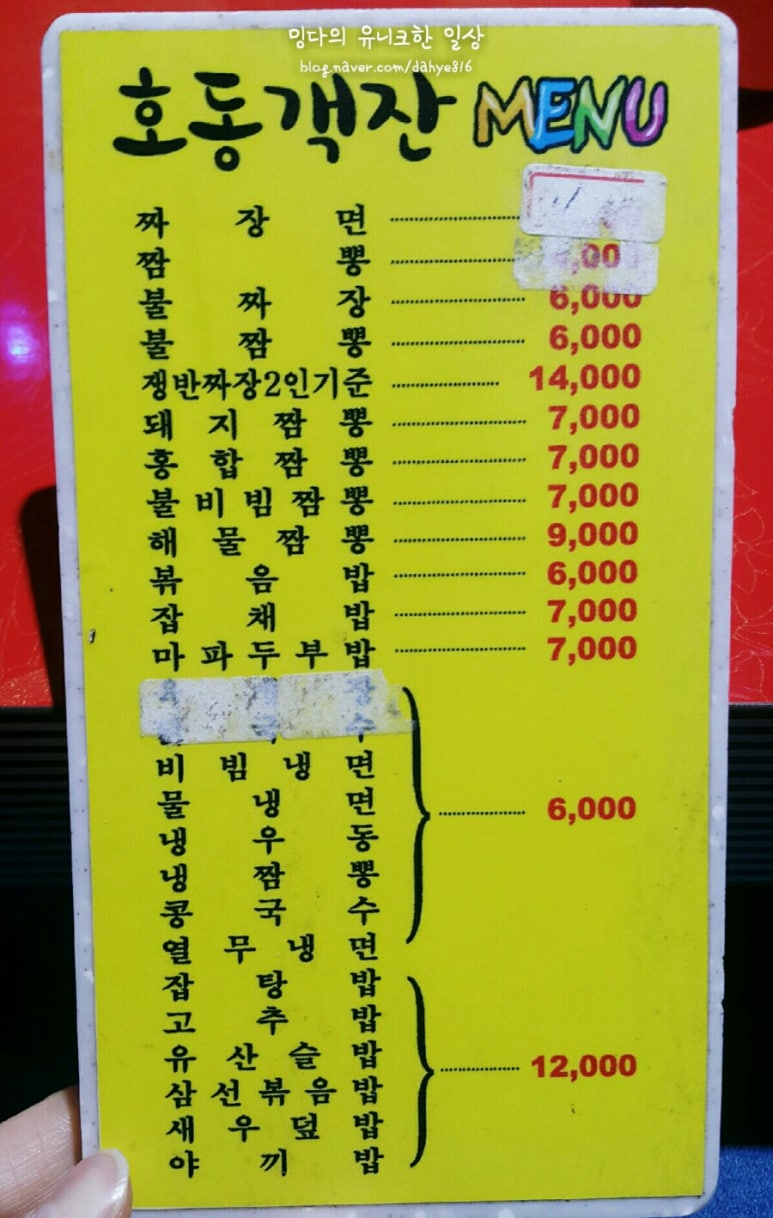 밍다의 유니크한 일상
blog.naver.com/dahye816
호동객잔 MENU
짜장면
짬뽕
불짜장 6,000
불짬뽕 6,000
쟁반짜장2인기준 14,000
돼지짬뽕 7,000
홍합짬뽕 7,000
불비빔짬뽕 7,000
해물짬뽕 9,000
볶음밥 6,000
잡채밥 7,000
마파두부밥 7,000
비빔냉면
물냉면
냉우동 6,000
냉짬뽕
콩국수
열무냉면
잡탕밥
고추밥
유산슬밥 12,000
삼선볶음밥
새우덮밥
야끼밥